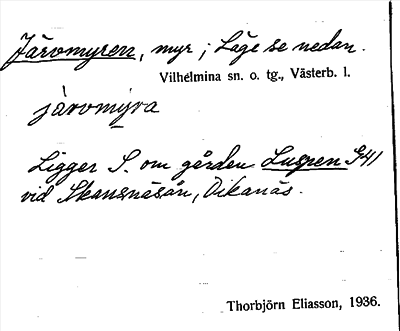 Järvmyren, myr; Läge se nedan.
Vilhelmina sn. o. tg., Västerb. l.
järvmyra
Ligger S. om gården Luspen S41
vid Skansnäsån, Dikanäs.
Thorbjörn Eliasson, 1936.